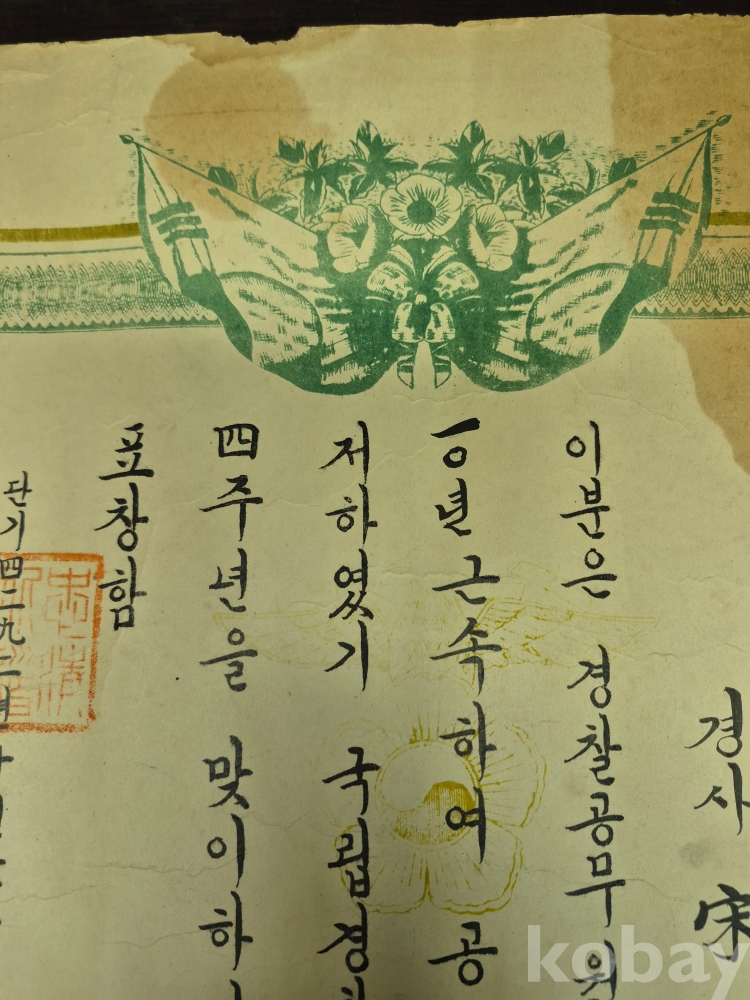 경사 宋
이분은 경찰공무원
一〇년근속하여 공
저하였기 국립경
四주년을 맞이하
표창함
단기四二九二년
kobay